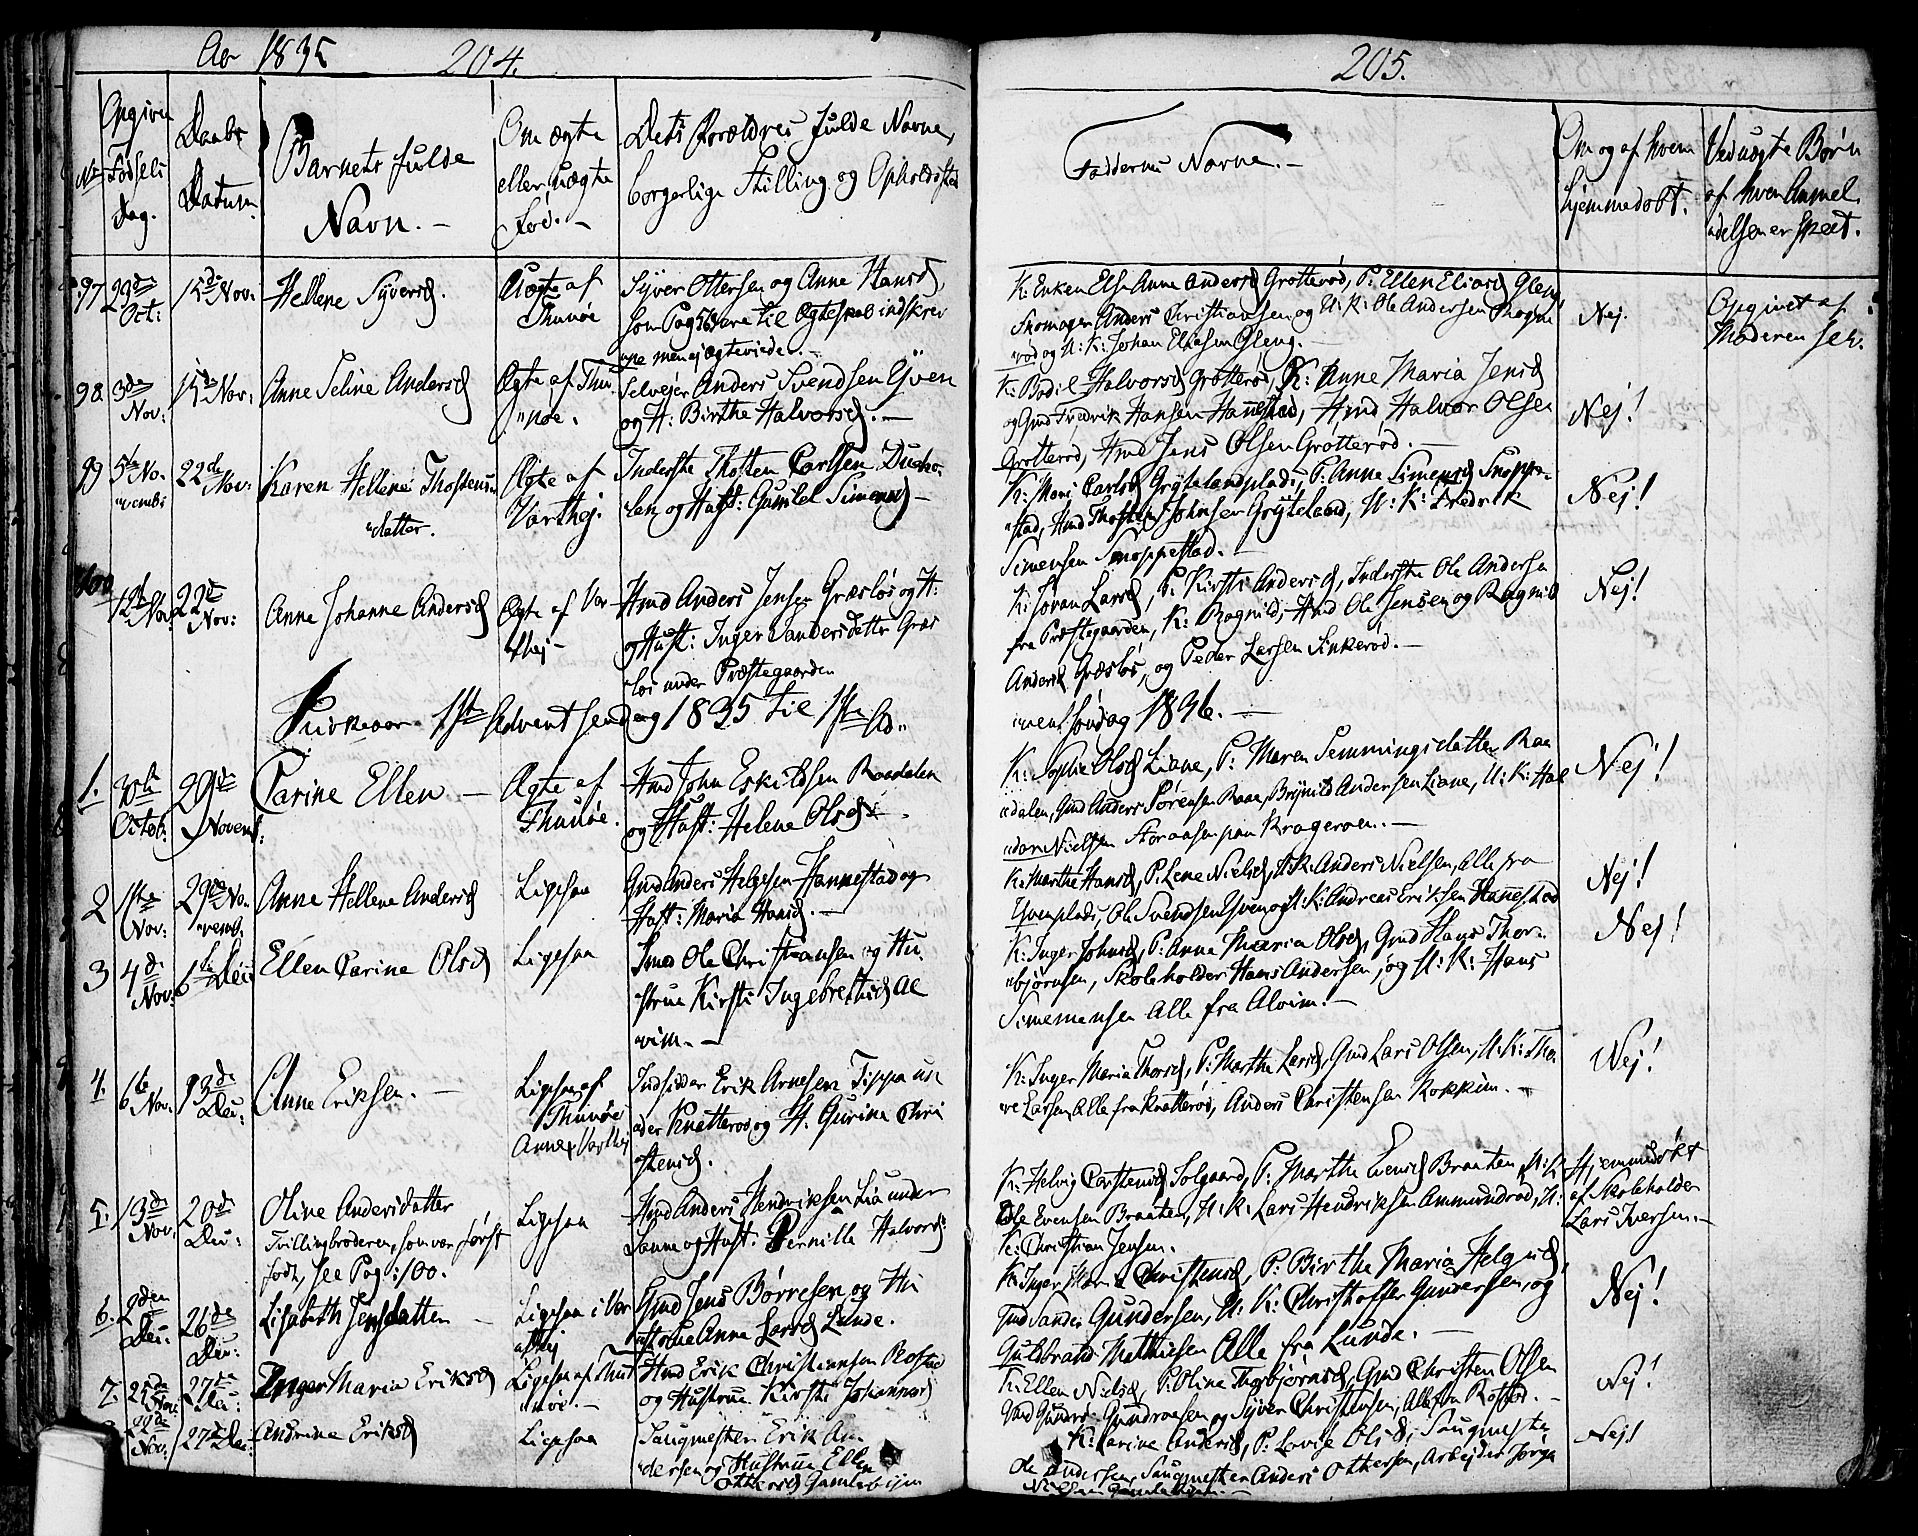 Aar 1835 204.
No
Opgiven Fødsels Dag.
Daabs Datum.
Barnets fulde Navn. -
Om ægte eller uægte Fød. -
Dets Forældres fulde Navne,
borgerlige Stilling og Opholdsted
97 29de Oct: 15de Nov: Hellene Syversd. Uægte af Thunøe
Syver Ottersen og Anne Hansd,
som Pag: vare til Ægteskab indskrev
"ne men ej ægteviede. -
98 3de Nov: 15de Nov: Anne Seline Andersd Ægte af Thu "nøe.
Selvejer Anders Svendsen Yven
og H: Birthe Halvorsd. -
99 5te No "vemb: 22de Nov: Karen Hellene Thostens "datter. Ægte af Varthej.
Inderste Thosten Carlsen Dusko
"len og Hust: Gunild Simensd -
100 12te Nov: 22de Nov: Anne Johanne Andersd Ægte af Var "thej -
Hmd Anders Jensen Græsløs og H:
og Hust: Inger Sandersdatter Græs
"løs under Præstegaarden
Kirkeaar 1ste Advent søndag 1835 til 1ste Ad"
1. 30te Octob: 29de Novemb: Carine Ellen - Ægte af Thunøe.
Hmd John Eskildsen Raadalen
og Hust: Helene Olsd. -
2 1ste Nov: 29de No "vemb. Anne Hellene Andersd Ligesaa
Gmd Anders Helgesen Hannestad og
Hust: Maria Hansd. -
3 4de Nov: 6te Dec: Ellen Carine Olsd Ligesaa
Smed Ole Christiansen og Hu
"strue Kirsti Ingebrethsd Al
"vim. -
4. 6te Nov: 13de Dec: Anne Eriksen. - Ligesaa af Thunøe Annex Varthej
Indsidder Erik Arnesen Tippa un
"der Knatterød og H. Gurine Chri
"stensd.
5. 13de Nov: 20de Dec: Oline Andersdatter
Tvillingbroderen, som var først
født, see Pag: 100.
Ligesaa
Hmd Anders Hendriksen Lia under
Sanne og Hust: Pernille Halvorsd
6. 2den Dec: 26de Dec: Lisabeth Jensdatter - Ligesaa i Var "thej
Gmd Jens Børresen og Hu
"strue Anne Larsd Lunde.
7. 25de Nov: 27de Dec: Inger Maria Eriksd Ligesaa af Thu "nøe. -
Hmd Erik Christiansen Rostad
og Hustrue Kirsti Johannesd
22de Nov: 27de Dec: Andrine Eriksd Ligesaa
Saugmester Erik An
"dersen og Hustrue Ellen
Ottersd Gamlebyen
205.
Faddernes Navne. -
Om og af hvem hjemmedøbt.
Ved uægte Børn af hvem Anmeldelsen er skeet.
K: Enken Else Anne Andersd Grøtterød, P: Ellen Eliasd Gleng,
Skomager Anders Christiansen og U: K: Ole Andersen
"rød og U: K: Johan Elsesen Gleng. -
Nej.
Opgivet af Moderen selv.
K: Bodil Halvorsd Grøtterød, K: Anne Maria Jensd
og Gmd Fredrik Hansen Hannestad, Hmd Halvor Olsen
Grøtterød, Hmd Jens Olsen Grøtterød. -
Nej!
K: Mari Carlsd Grytelandplads, P: Anne Simensd Snoppe
"stad, Hmd Thosten Johnsen Gryteland, U: K: Fredrik
Simensen Snoppestad. -
Nej!
K: Joran Larsd, P: Kirsti Andersd, Inderste Ole Andersen
fra Præstegaarden, K: Ragnild, Hmd Ole Jensen og Ragnild
Andersd Græsløs, og Peder Larsen Sinkerød. -
Nej!
"vent søndag 1836. -
K: Sophie Olsd Liane, P: Maren Semmingsdatter Raa
"dalen, Gmd Anders Sørensen Raae, Brynild Andersen Liane, U: K: Hal
"dor Nielsen Storaasen paa Krageroen. -
Nej!
K: Marthe Hansd, P: Lene Nielsd, U: K: Anders Nielsen, Alle fra
Yvenplads, Ole Svendsen Yven og U: K: Andreas Eriksen Hannestad
Nej!
K: Inger Johnsd, P: Anne Maria Olsd, Gmd Hans Thor
"bjørnsen, Skoleholder Hans Andersen, og U: K: Hans
Simensen Alle fra Alvim. -
Nej!
K: Inger Maria Thorsd, P: Marthe Larsd, Gmd Lars Olsen, U: K: Tho
"re Larsen, Alle fra Knatterød, Anders Christensen Kokkim. -
Nej!
K: Helvig Carstensd Solgaard, P: Marthe Evensd Braaten, U: K:
Ole Evensen Braaten, U: K: Lars Hendriksen Ammundrød, U:
K: Christian Jensen.
Hjemmedøbt af Skoleholder Lars Iversen. -
K: Inger Maria Christensd, P: Birthe Maria Helgesd,
Gmd Sander Gundersen, U: K: Christoffer Gundersen, og
Gulbrand Mathiesen Alle fra Lunde. -
Nej!
K: Ellen Nielsd, P: Oline Thorbjørnsd, Gmd Christen Olsen
Gmd Gunder Gundersen og Syver Christensen, Alle fra Rostad. -
Nej!
K: Karine Andersd, P: Lovise Olsd, Saugmester
Ole Andersen, Saugmester Anders Ottersen, Arbejder Jørgen
Nielsen Gamlebyen. -
Nej!